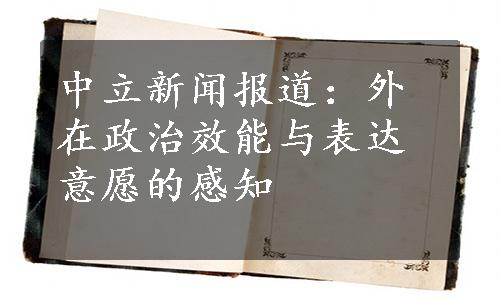 中立新闻报道：外
在政治效能与表达
意愿的感知